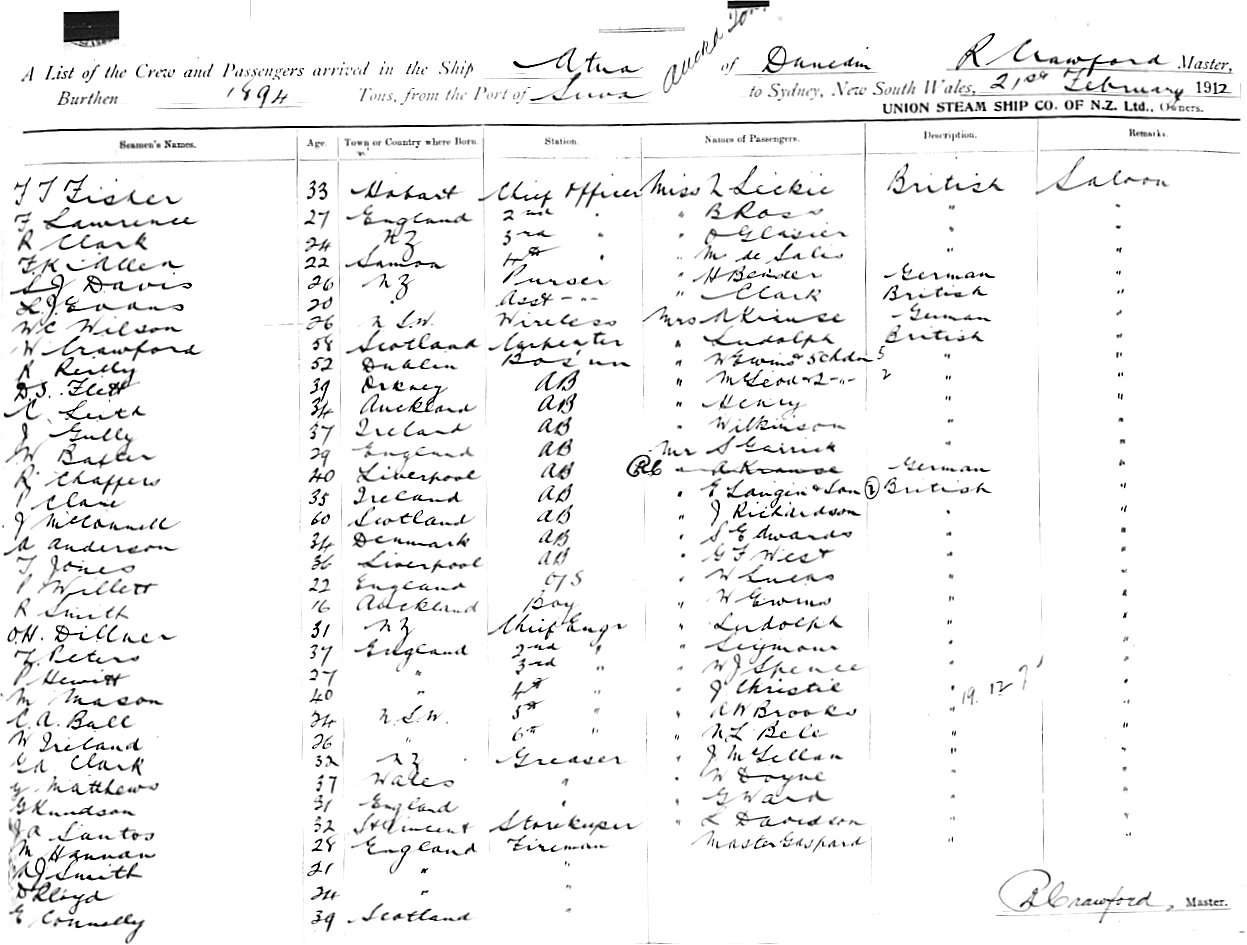 Auckd Tom
A List of the Crew and Passengers arrived in the Ship Atua of Dunedin R Crawford Master,
Burthen 1894 Tons, from the Port of Suva to Sydney, New South Wales, 21st February 1912
UNION STEAM SHIP CO. OF N.Z. Ltd., Owners.
Seamen's Names. Age Town or Country where Born. Station. Names of Passengers. Description. Remarks.
T T Fisher 33 Hobart Chief Officer Miss N Leckie British Saloon
F Lawrence 27 England 2nd " " B Ross " "
R Clark 24 NZ 3rd " " O Glasier " "
F K Allen 22 Samoa 4th " " M de Salis " "
S J Davis 26 NZ Purser " H Bender German "
L J Evans 20 " Asst -"- " Clark British "
W C Wilson 26 N S.W. Wireless Mrs A Krause German "
W Crawford 58 Scotland Carpenter " Ludolph British "
R Reilly 52 Dublin Bos'un " W Ewins & 5 chdn 5 " "
D.S. Flett 39 Orkney AB " McLeod & 2 -"- 2 " "
Leith 34 Auckland AB " Henry " "
J Gully 37 Ireland AB " Wilkinson " "
W Baxter 29 England AB Mr S Garrick "
R Chaffers 40 Liverpool AB RC " A Krause German "
P Clare 35 Ireland AB " E Langin & Son 2 British "
J McConnell 60 Scotland AB " J Richardson " "
A Anderson 34 Denmark AB " S Edwards " "
T Jones 36 Liverpool AB " G F West " "
P Willett 22 England O/S " W Lucas " "
R Smith 16 Auckland Boy " W Ewins " "
O.H. Dillner 31 NZ Chief Engr " Ludolph " "
T Peters 37 England 2nd " " Seymour " "
P Hewitt 27 " 3rd " " W J Spence " "
M Mason 40 " 4th " " J Christie " 19.12.7 "
C.A. Ball 24 N.S.W. 5th " " A W Brooks " "
W Ireland 26 " 6th " " N L Bell " "
G A Clark 32 NZ Greaser " J McLellan " "
Matthews 37 Wales " " W Doyne " "
G Knudson 31 England " " G Ward " "
J A Santos 32 St Vincent Storekeeper " L Davidson " "
M Hannan 28 England Fireman Master Gaspard " "
A J Smith 21 " "
D Lloyd 24 " "
E Connelly 39 Scotland "
R Crawford, Master.